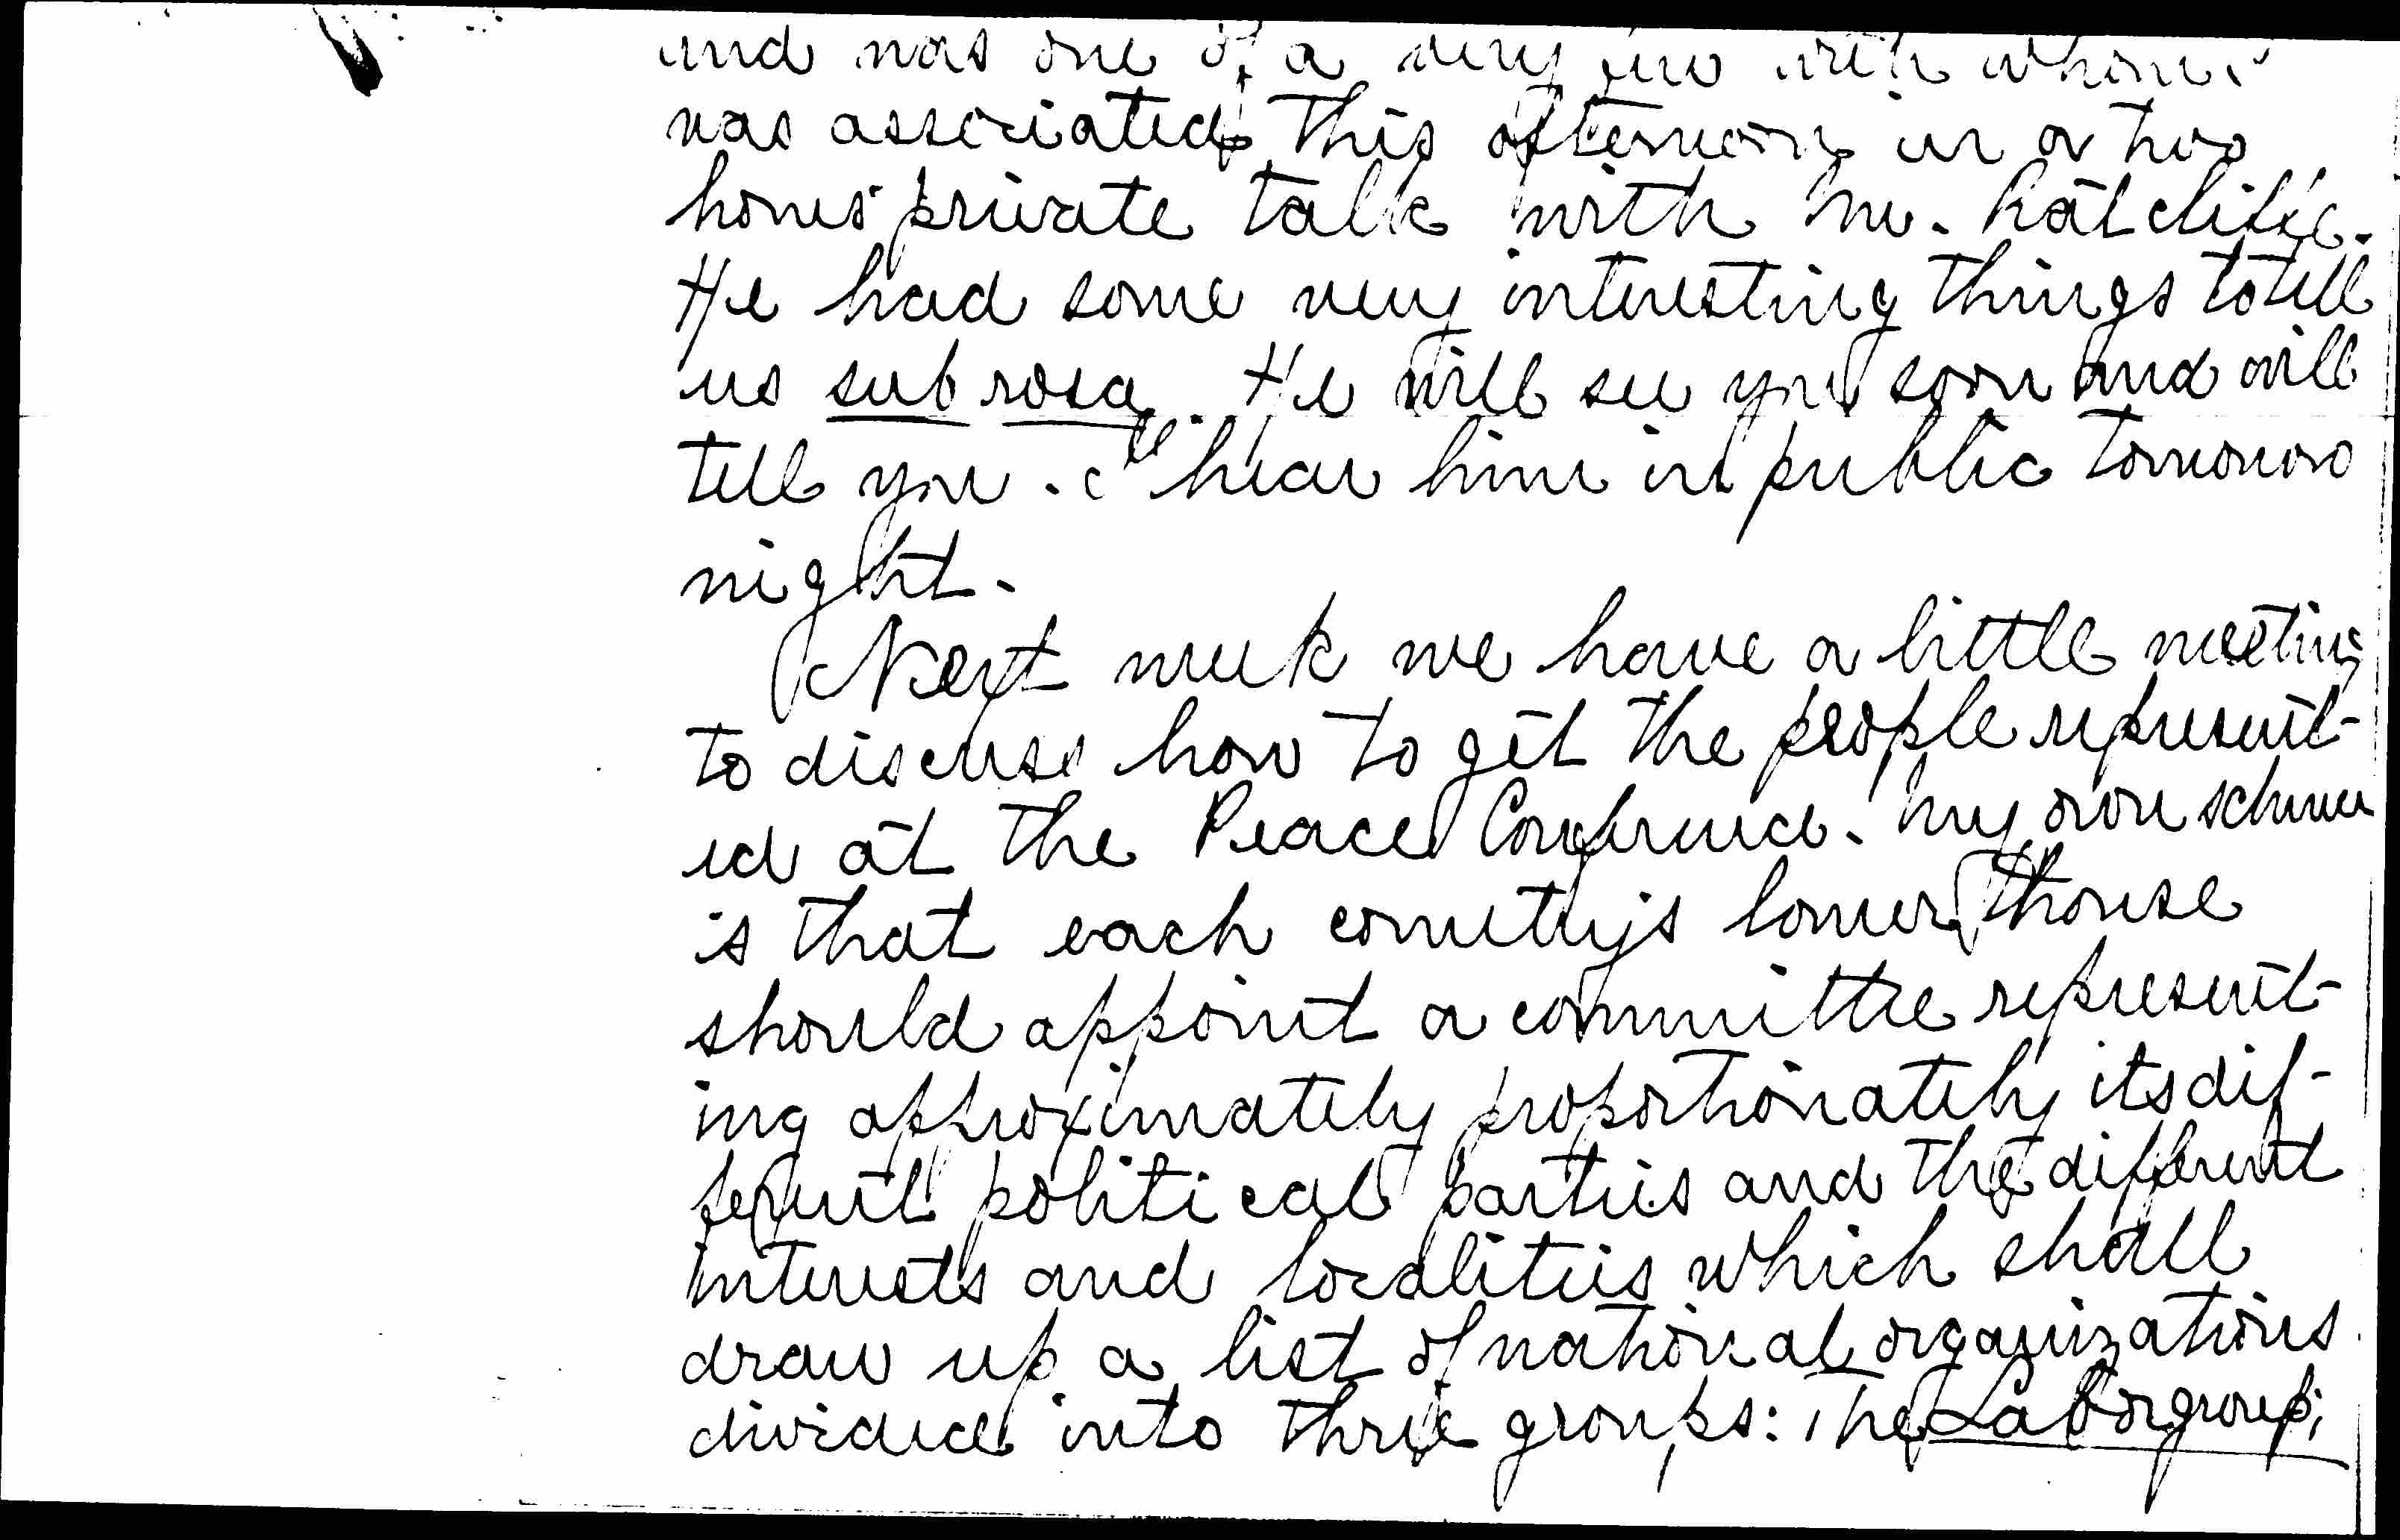 and was one of a very few with whom I
was associated this afternoon in a two
hours' private talk with Mr. Ratcliffe.
He had some very interesting things to tell
us sub rosa. He will see you soon and will
tell you. I'll hear him in public tomorrow
night.
Next week we have a little meeting
to discuss how to get the people represent-
ed at the Peace Conference. My own scheme
is that each country's lower house
should appoint a committee represent-
ing approximately proportionately its dif-
ferent political parties and the different
interests and localities which shall
draw up a list of national organizations
divided into three groups: The Labor group;